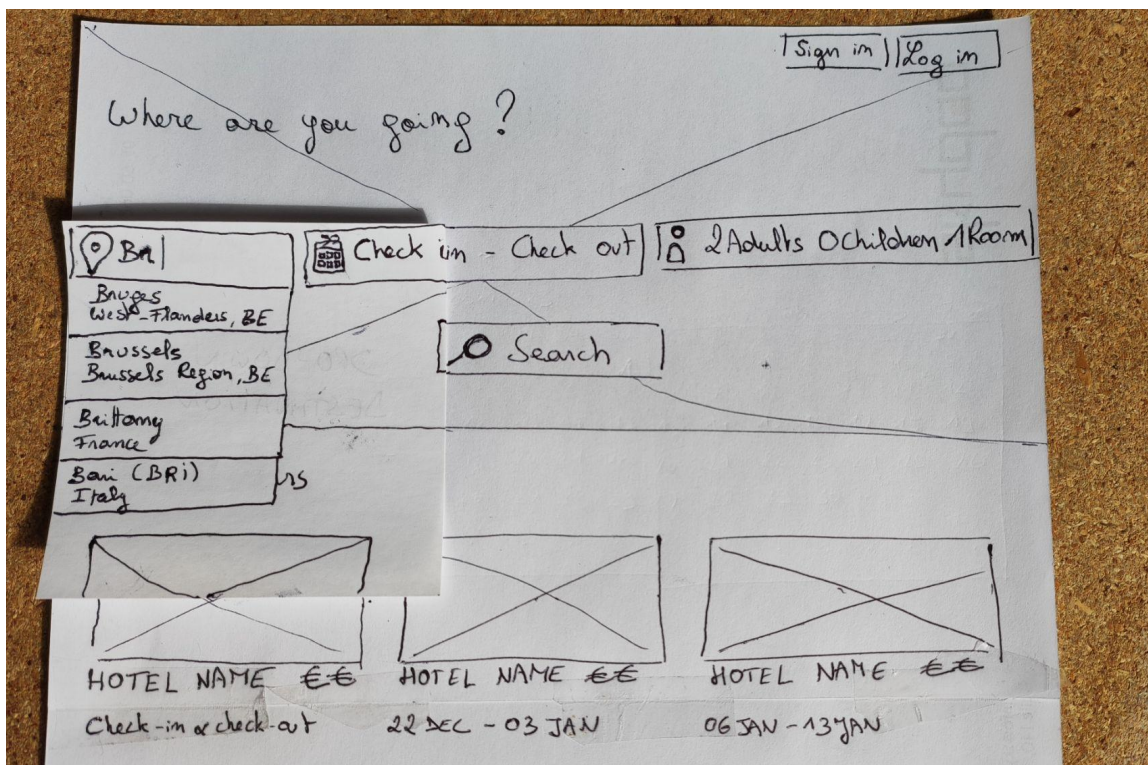 Sign in Log in
Where are you going?
Br Check in - Check out 2 Adults 0 Children 1 Room
Bruges
West-Flanders, BE
Search
Brussels
Brussels Region, BE
Brittany
France
Bari (BRi)
Italy
rs
HOTEL NAME €€ HOTEL NAME €€ HOTEL NAME €€
Check-in & check-out 22 DEC - 03 JAN 06 JAN - 13 JAN